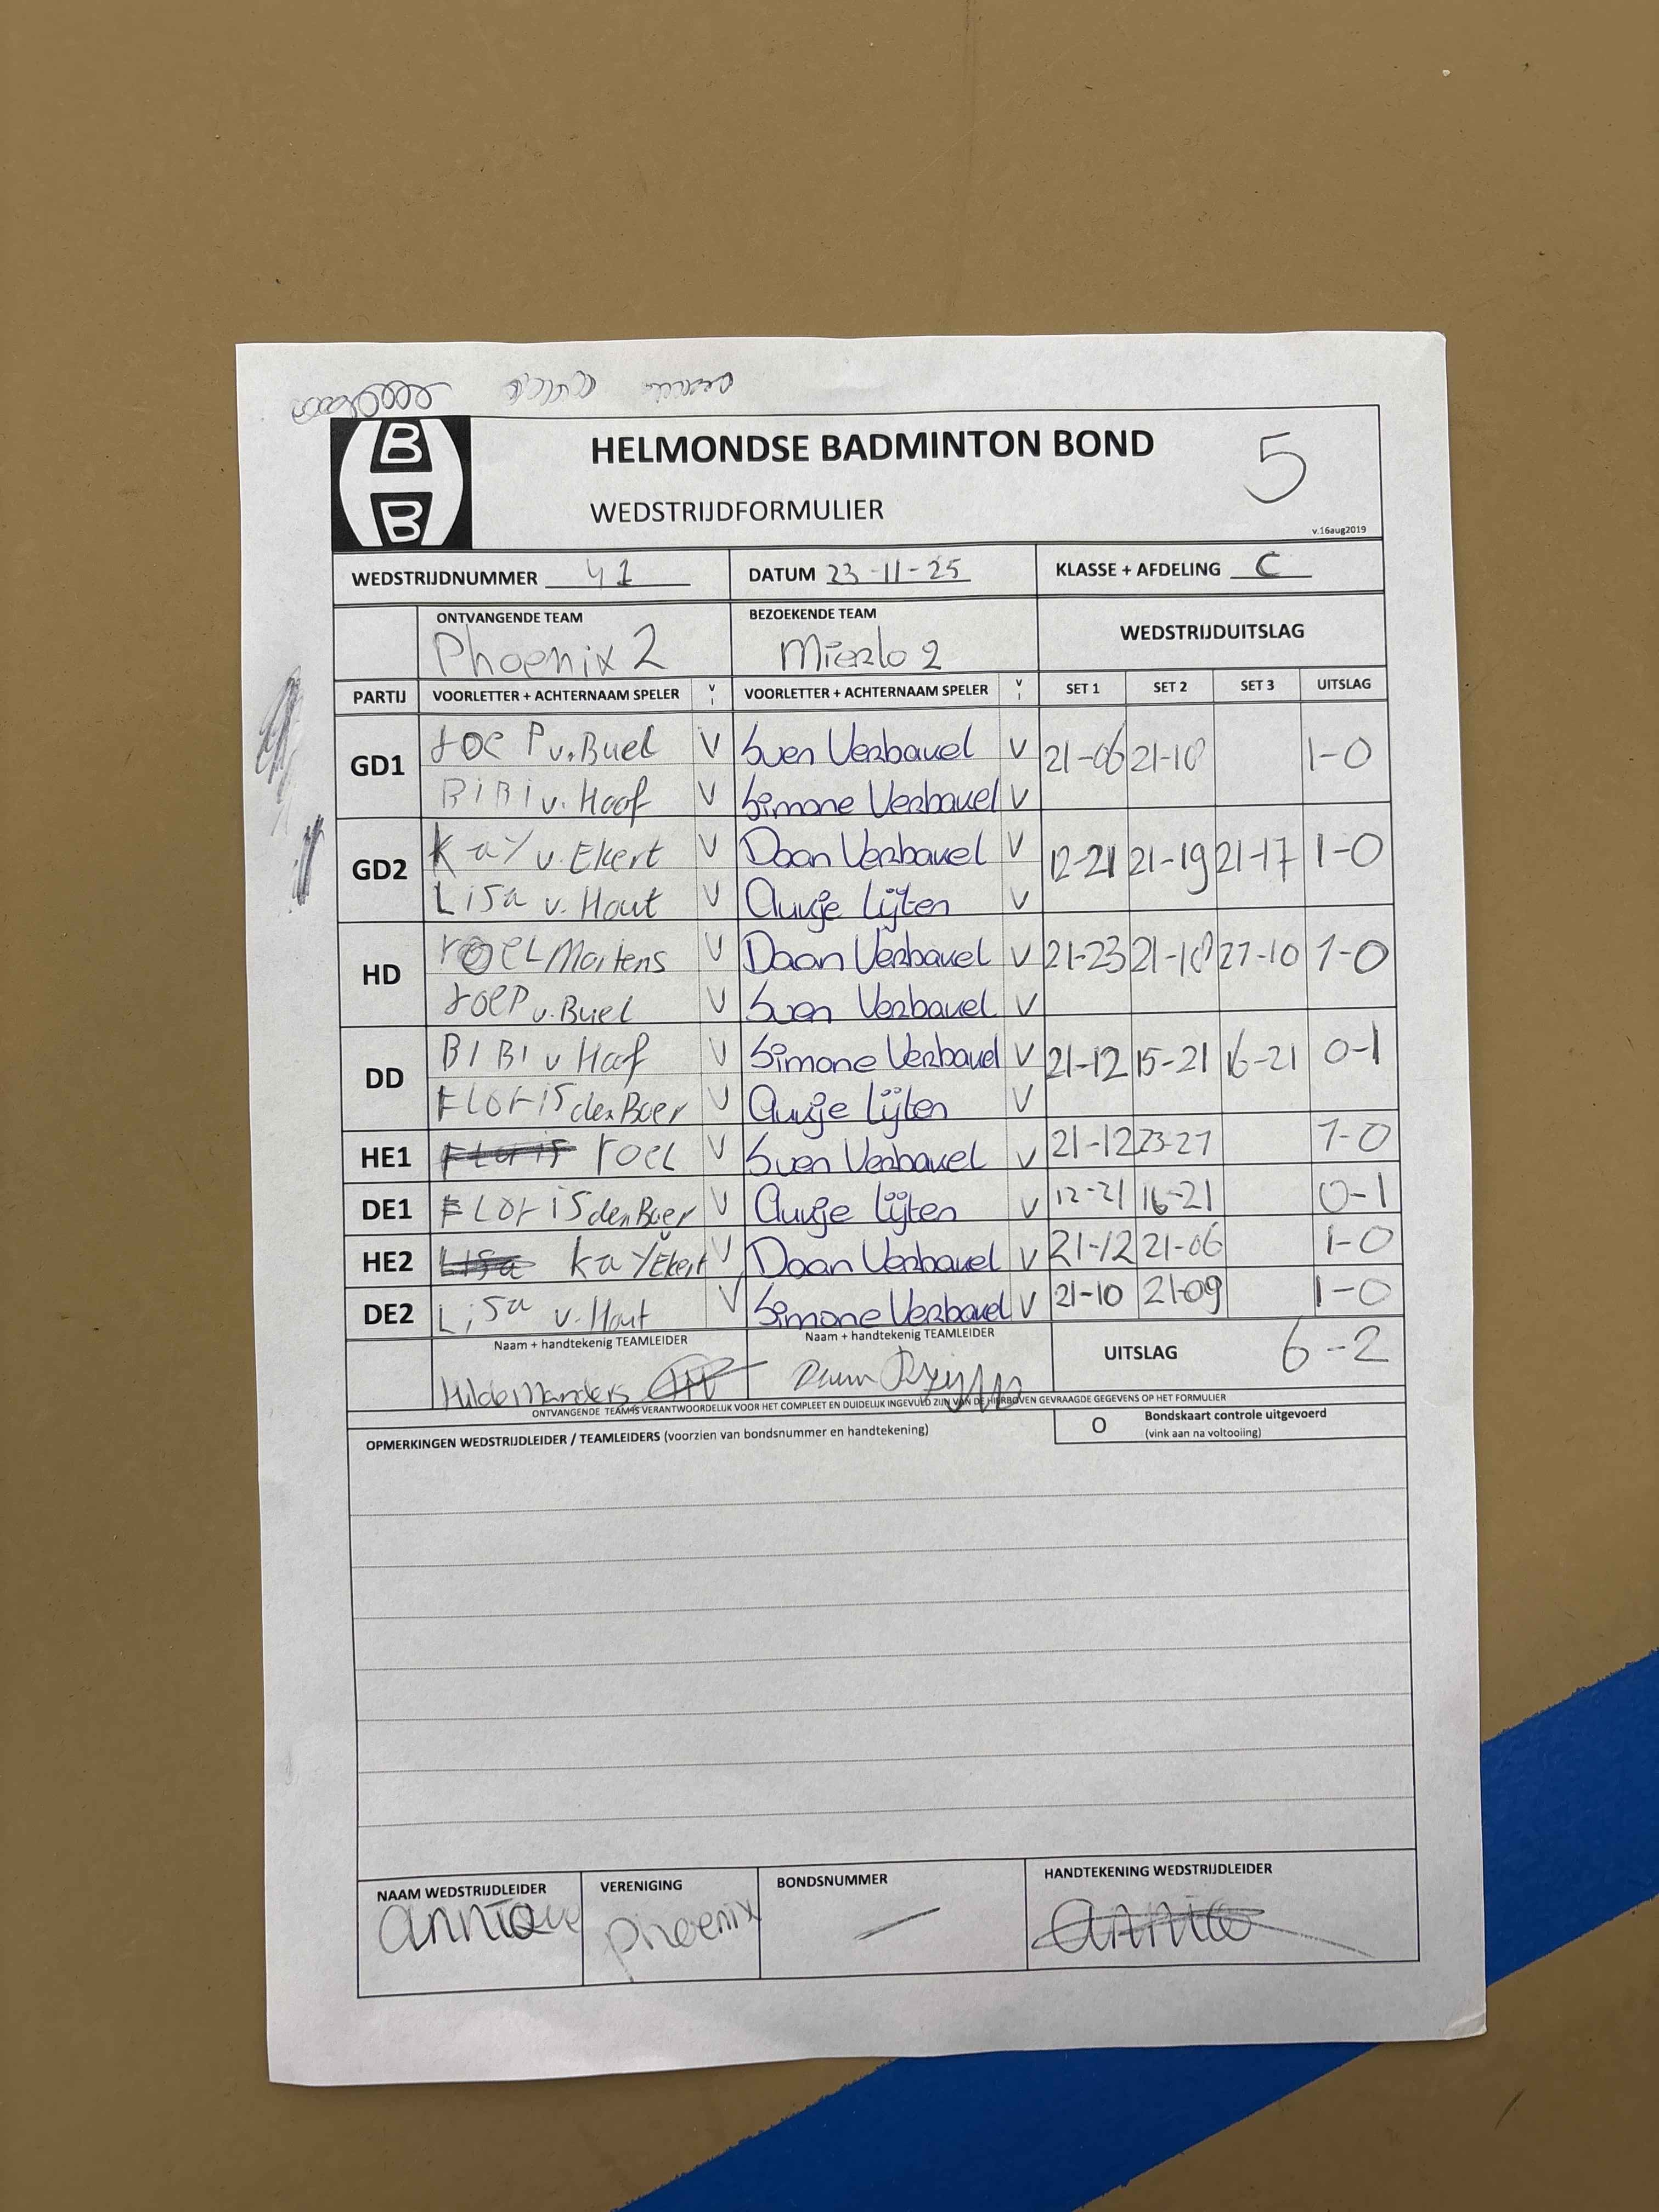 HELMONDSE BADMINTON BOND
5
B
B
WEDSTRIJDFORMULIER
v.16aug2019
WEDSTRIJDNUMMER 41 DATUM 23-11-25 KLASSE + AFDELING C
ONTVANGENDE TEAM BEZOEKENDE TEAM WEDSTRIJDUITSLAG
Phoenix 2 Mierlo 2
PARTIJ VOORLETTER + ACHTERNAAM SPELER V VOORLETTER + ACHTERNAAM SPELER V SET 1 SET 2 SET 3 UITSLAG
GD1 Joep v. Buel V Sven Verbavel V 21-06 21-18 1-0
BiBi v. Hoof V Simone Verbavel V
GD2 Kay v. Ekert V Daan Verbavel V 12-21 21-19 21-17 1-0
Lisa v. Hout V Auvje Lijten V
HD roel Martens V Daan Verbavel V 21-23 21-18 21-10 1-0
Joep v. Buel V Sven Verbavel V
DD BiBi v Hoof V Simone Verbavel V 21-12 15-21 16-21 0-1
Floris den Boer V Auvje Lijten V
HE1 Floris roel V Sven Verbavel V 21-12 23-21 1-0
DE1 Floris den Boer V Auvje Lijten V 12-21 16-21 0-1
HE2 Lisa kay v Ekert V Daan Verbavel V 21-12 21-06 1-0
DE2 Lisa v. Hout V Simone Verbavel V 21-10 21-09 1-0
Naam + handtekenig TEAMLEIDER Naam + handtekenig TEAMLEIDER UITSLAG 6-2
Hilde Manders
ONTVANGENDE TEAM IS VERANTWOORDELIJK VOOR HET COMPLEET EN DUIDELIJK INGEVULD ZIJN VAN DE HIERBOVEN GEVRAAGDE GEGEVENS OP HET FORMULIER
OPMERKINGEN WEDSTRIJDLEIDER / TEAMLEIDERS (voorzien van bondsnummer en handtekening) O Bondskaart controle uitgevoerd
(vink aan na voltooiing)
NAAM WEDSTRIJDLEIDER VERENIGING BONDSNUMMER HANDTEKENING WEDSTRIJDLEIDER
annique phoenix —